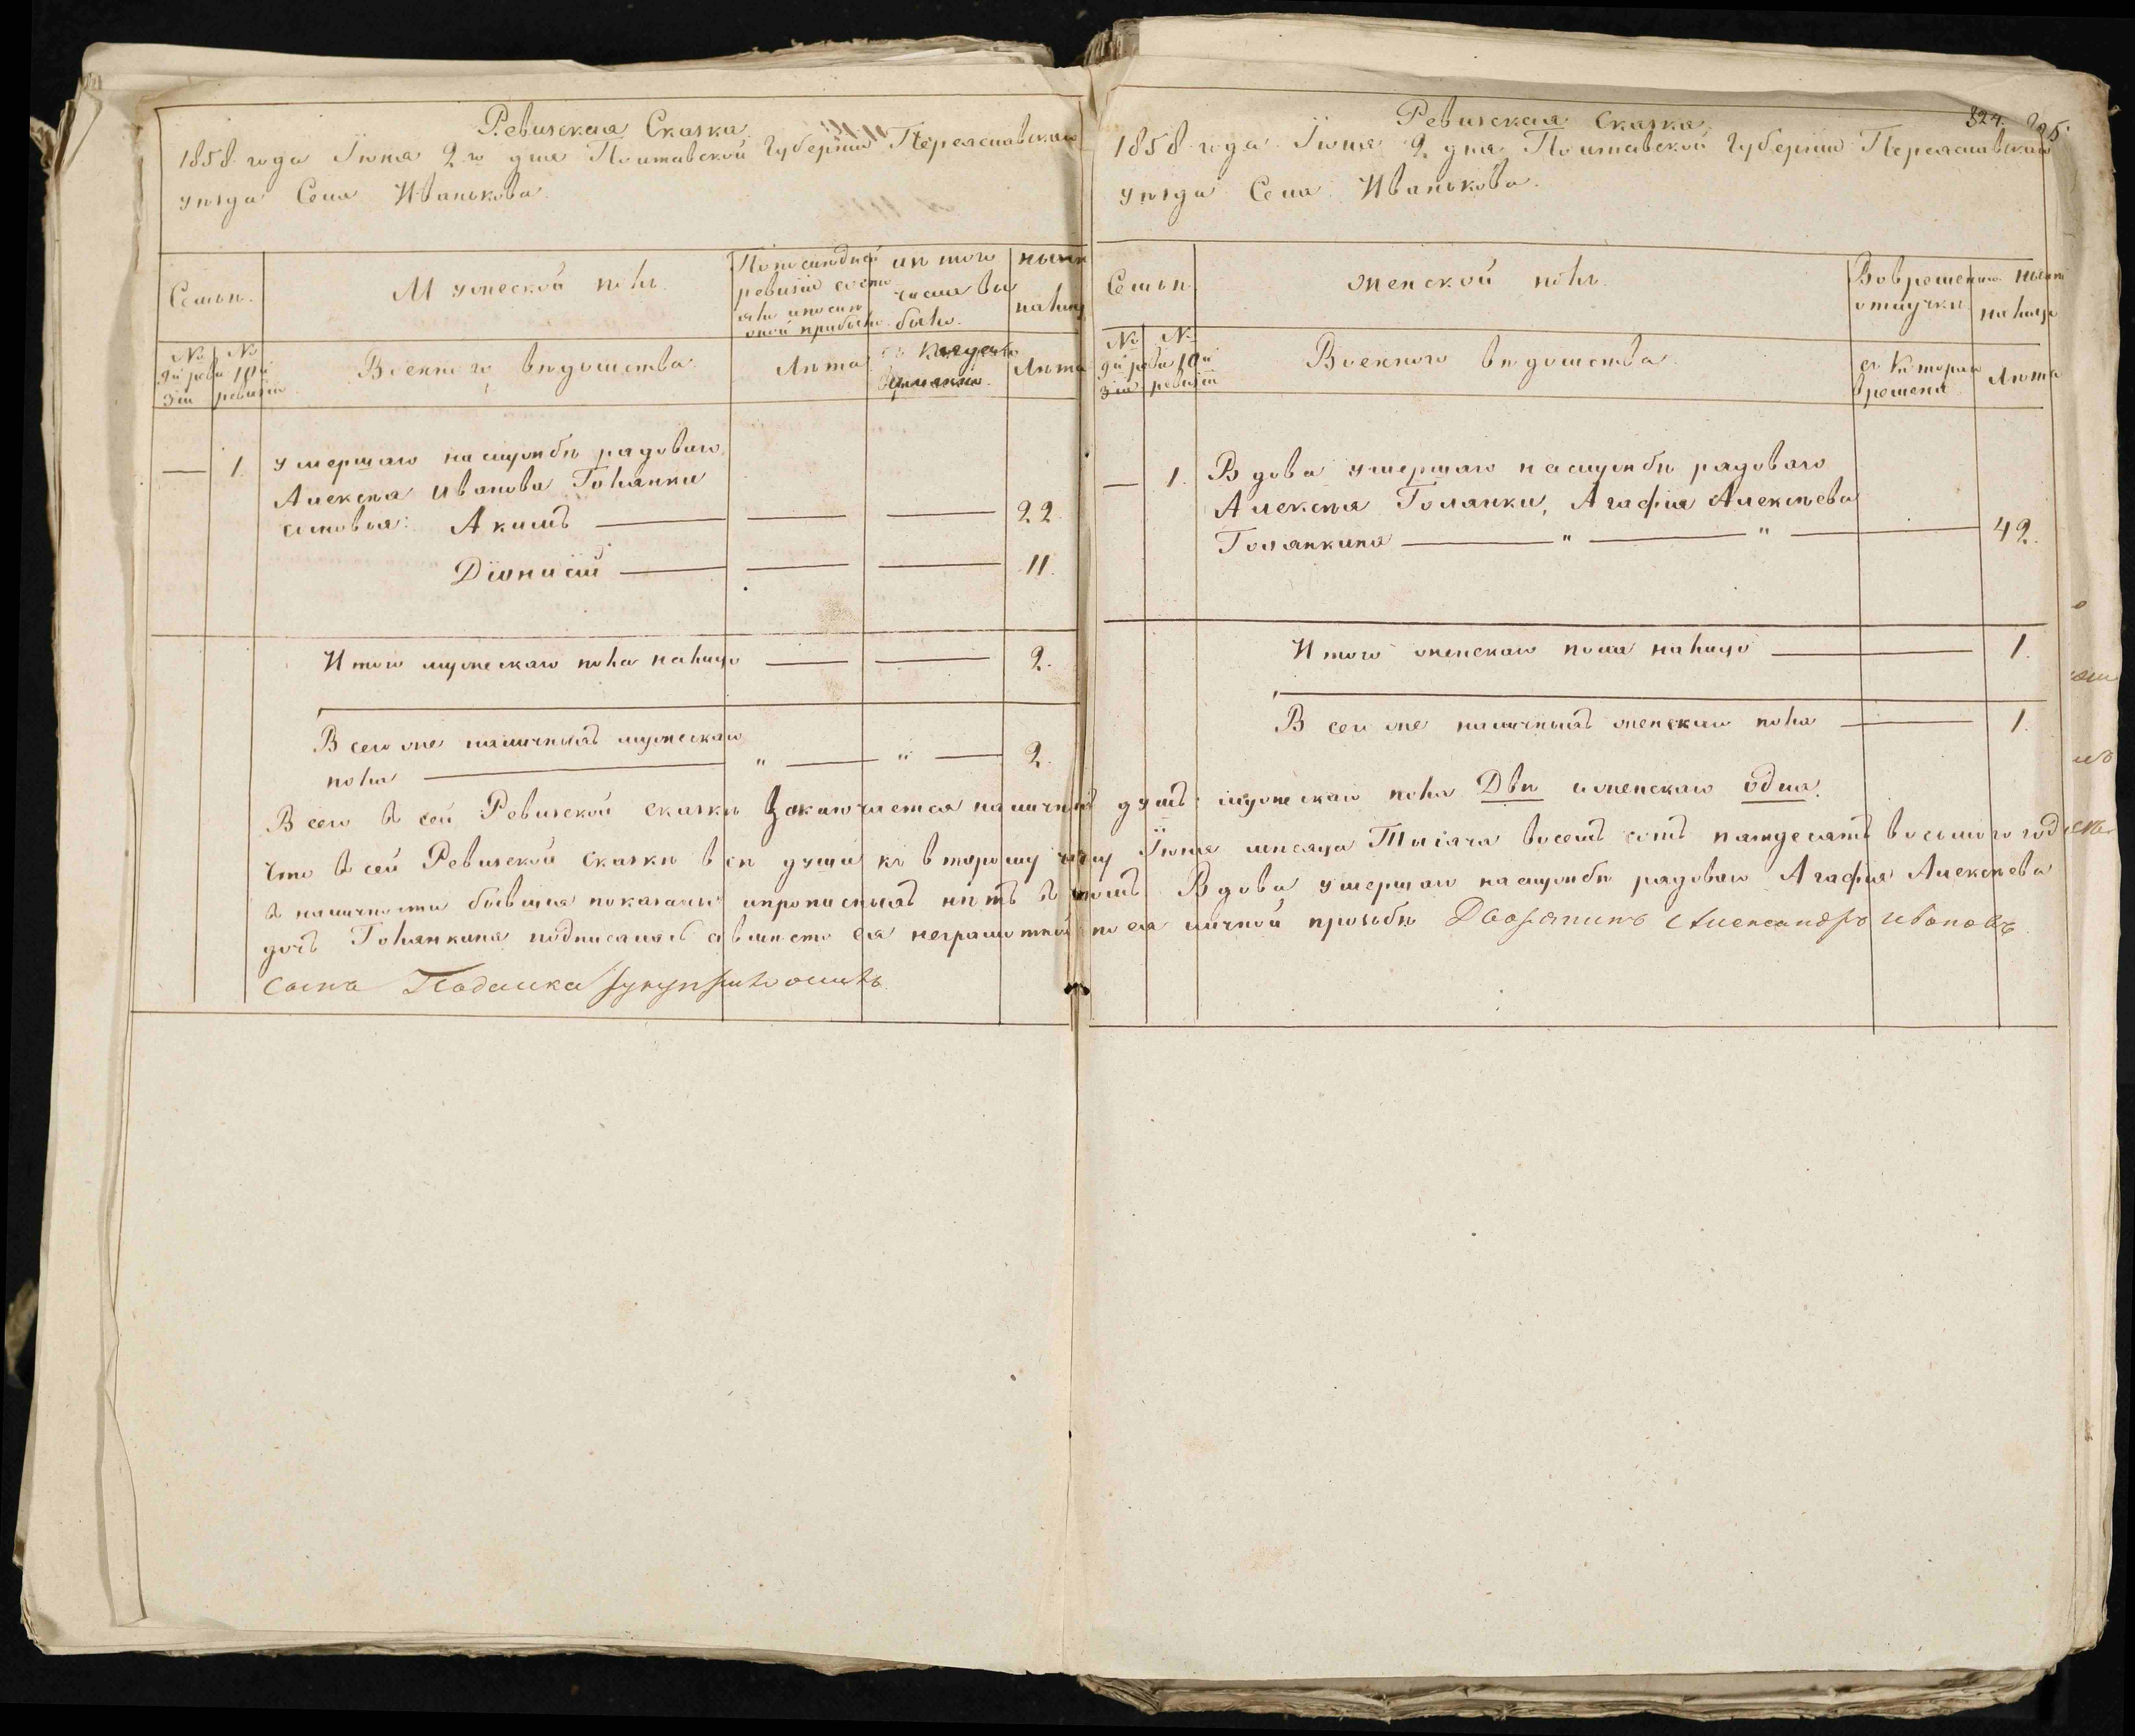 Ревизская Сказка
1858 года Іюня 2го дня Полтавской Губерніи Переяславскаго
уѣзда Села Иванькова.
Семьи.
Мужескай полъ.
По последней
ревизіи состо
яло и после
оной прибыло
изъ того
числа вы
было.
нынѣ
на лицо
№ №
9й реви 10й
зіи ревизіи
Военнаго вѣдомства.
Лѣта
Лѣта
— 1. Умершаго на службѣ рядоваго
Алексѣя Иванова Голянки
сыновья: Акимъ — — — 22.
Діонисій — — — 11.
Итого мужескаго пола на лицо — — 2.
Всего же наличныхъ мужескаго
пола — " — " — 2.
824.
Ревизская Сказка
1858 года Іюня 2 дня Полтавской Губерніи Переяславскаго
уѣзда Села Иванькова.
Семьи
Женской полъ.
Во временной
отлучки
нынѣ
на лицо
№ №
9й реви 10й
зіи ревизіи
Военнаго вѣдомства.
съ котораго
времени
Лѣта
— 1. Вдова умершаго на службѣ рядоваго
Алексѣя Голянки, Агафія Алексѣева
Голянкина — " — " — 42.
Итого женскаго пола на лицо — 1.
Всего же наличныхъ женскаго пола — 1.
Всего въ сей Ревизской сказки заключается наличныхъ душъ: мужескаго пола Двѣ и женскаго одна.
Что въ сей Ревизской сказки всѣ души ко второму числу Іюня месяца Тысяча восемъ сотъ пятдесятъ восьмого года
въ наличности бывшія показаны и прописныхъ нѣтъ въ томъ Вдова умершаго на службѣ рядоваго Агафія Алексѣева
дочь Голянкина подписалась а вместо ея неграмотной по ея личной прозьбѣ Дворянинъ Александръ Ивановъ
сынъ руку приложилъ